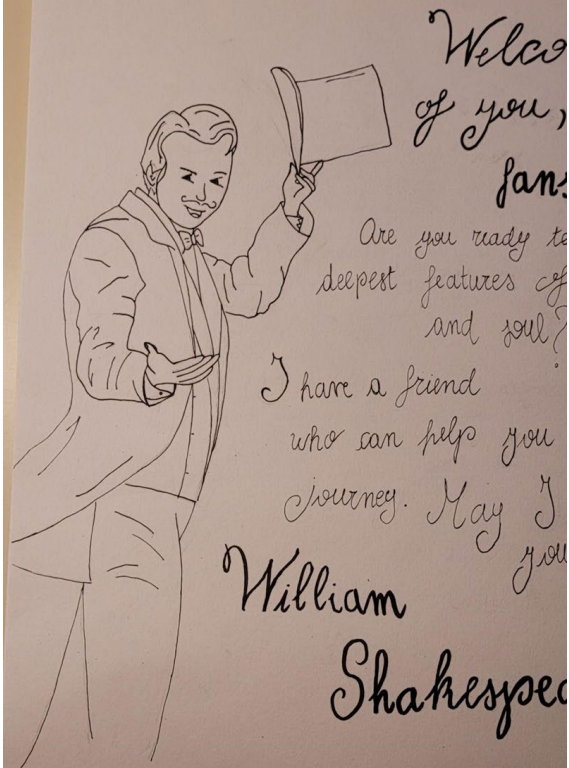 Welco
of you,
fans
Are you ready to
deepest features of
and soul?
I have a friend
who can help you
journey. May I
you
William
Shakespea